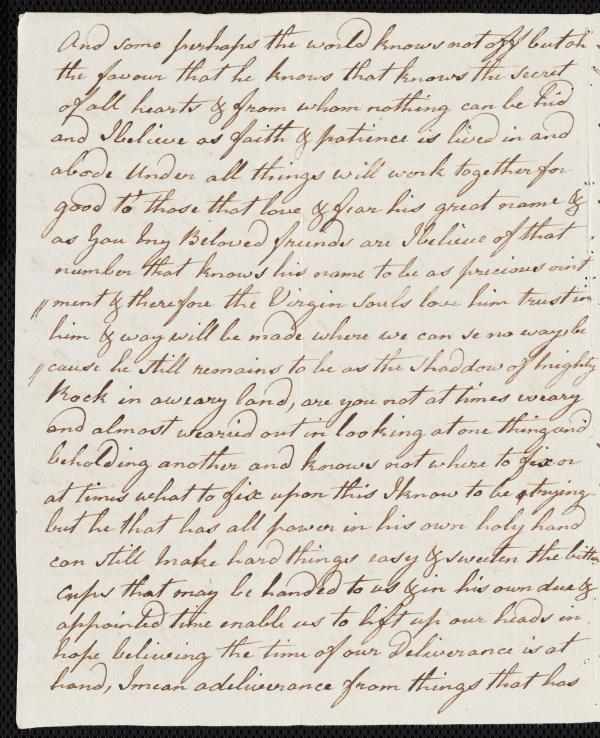 And some perhaps the world knows not off but oh
the favour that he knows that knows the secret
of all hearts & from whom nothing can be hid
and I believe as faith & patience is lived in and
abode under all things will work together for
good to those that love & fear his great name &
as you my Beloved friends are I believe of that
number that knows his name to be as precious oint
"ment & therefore the Virgin souls love him trust in
him & way will be made where we can se no way be
"cause he still remains to be as the shaddow of mighty
Rock in a weary land, are you not at times weary
and almost wearied out in looking at one thing and
beholding another and knows not where to fix or
at times what to fix upon this I know to be trying
but he that has all power in his own holy hand
can still make hard things easy & sweeten the bitter
cups that may be handed to us & in his own due &
appointed time enable us to lift up our heads in
hope believing the time of our deliverance is at
hand, I mean a deliverance from things that has